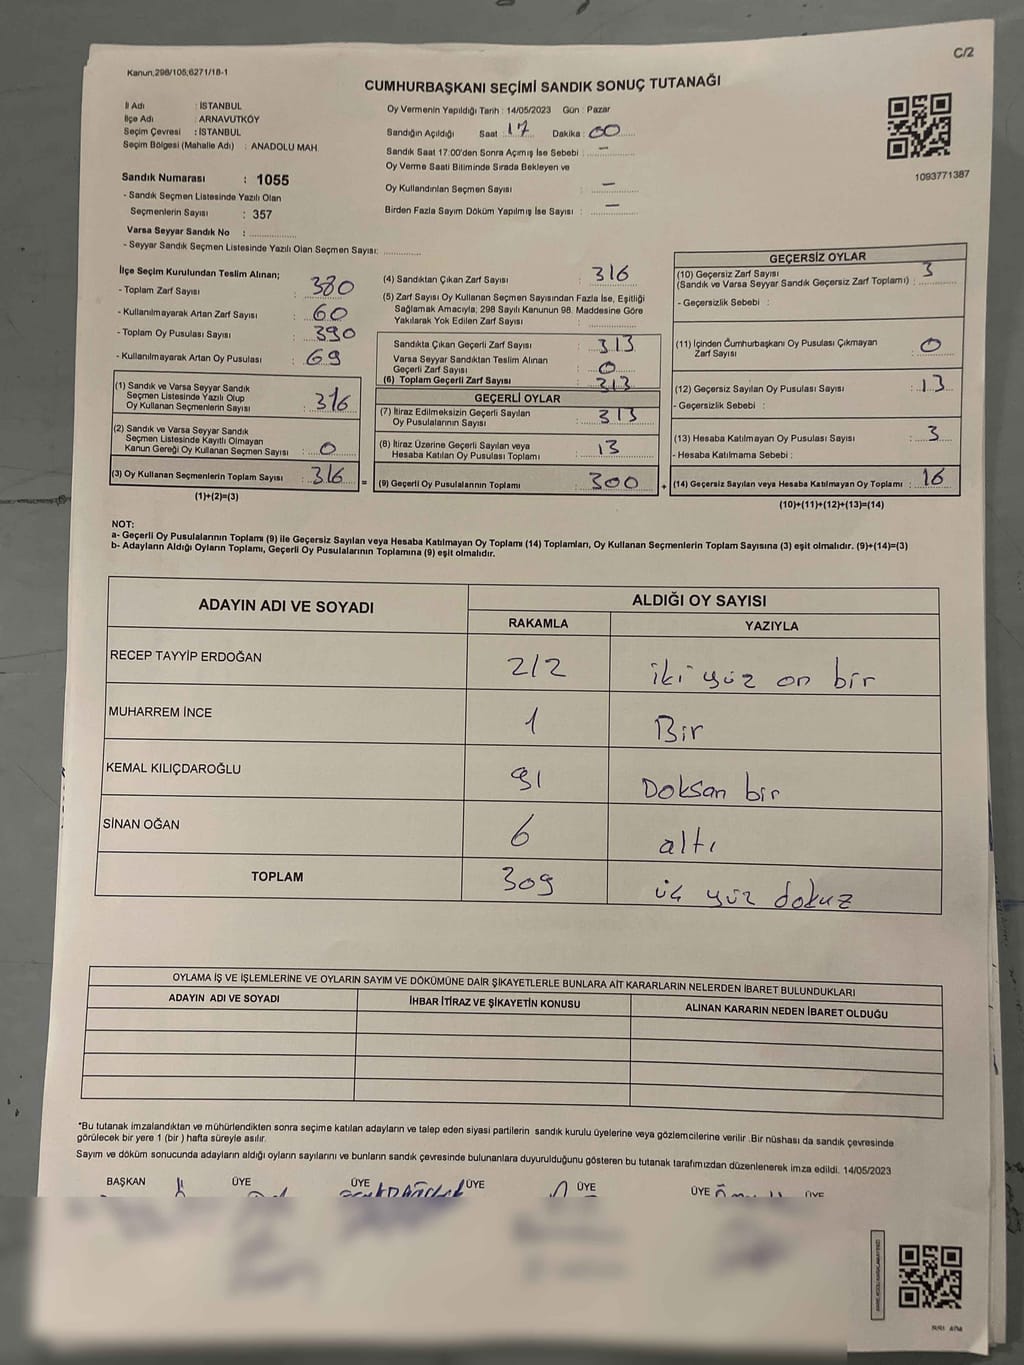 C/2
Kanun,298/105,6271/18-1
CUMHURBAŞKANI SEÇİMİ SANDIK SONUÇ TUTANAĞI
İl Adı : İSTANBUL
İlçe Adı : ARNAVUTKÖY
Seçim Çevresi : İSTANBUL
Seçim Bölgesi (Mahalle Adı) : ANADOLU MAH.
Sandık Numarası : 1055
- Sandık Seçmen Listesinde Yazılı Olan
Seçmenlerin Sayısı : 357
Varsa Seyyar Sandık No :
- Seyyar Sandık Seçmen Listesinde Yazılı Olan Seçmen Sayısı:
Oy Vermenin Yapıldığı Tarih : 14/05/2023 Gün : Pazar
Sandığın Açıldığı Saat : 17 Dakika : 00
Sandık Saat 17:00'den Sonra Açımış İse Sebebi : -
Oy Verme Saati Bitiminde Sırada Bekleyen ve
Oy Kullandırılan Seçmen Sayısı : -
Birden Fazla Sayım Döküm Yapılmış İse Sayısı : -
1093771387
İlçe Seçim Kurulundan Teslim Alınan;
- Toplam Zarf Sayısı : 380
- Kullanılmayarak Artan Zarf Sayısı : 60
- Toplam Oy Pusulası Sayısı : 390
- Kullanılmayarak Artan Oy Pusulası : 69
(1) Sandık ve Varsa Seyyar Sandık
Seçmen Listesinde Yazılı Olup
Oy Kullanan Seçmenlerin Sayısı : 316
(2) Sandık ve Varsa Seyyar Sandık
Seçmen Listesinde Kayıtlı Olmayan
Kanun Gereği Oy Kullanan Seçmen Sayısı : 0
(3) Oy Kullanan Seçmenlerin Toplam Sayısı : 316 =
(1)+(2)=(3)
(4) Sandıktan Çıkan Zarf Sayısı : 316
(5) Zarf Sayısı Oy Kullanan Seçmen Sayısından Fazla İse, Eşitliği
Sağlamak Amacıyla; 298 Sayılı Kanunun 98. Maddesine Göre
Yakılarak Yok Edilen Zarf Sayısı :
Sandıkta Çıkan Geçerli Zarf Sayısı : 313
Varsa Seyyar Sandıktan Teslim Alınan
Geçerli Zarf Sayısı : 0
(6) Toplam Geçerli Zarf Sayısı : 313
GEÇERLİ OYLAR
(7) İtiraz Edilmeksizin Geçerli Sayılan
Oy Pusulalarının Sayısı : 313
(8) İtiraz Üzerine Geçerli Sayılan veya
Hesaba Katılan Oy Pusulası Toplamı : 13
(9) Geçerli Oy Pusulalarının Toplamı : 300 +
GEÇERSİZ OYLAR
(10) Geçersiz Zarf Sayısı
(Sandık ve Varsa Seyyar Sandık Geçersiz Zarf Toplamı) : 3
- Geçersizlik Sebebi :
(11) İçinden Cumhurbaşkanı Oy Pusulası Çıkmayan
Zarf Sayısı : 0
(12) Geçersiz Sayılan Oy Pusulası Sayısı : 13
- Geçersizlik Sebebi :
(13) Hesaba Katılmayan Oy Pusulası Sayısı : 3
- Hesaba Katılmama Sebebi :
(14) Geçersiz Sayılan veya Hesaba Katılmayan Oy Toplamı : 16
(10)+(11)+(12)+(13)=(14)
NOT:
a- Geçerli Oy Pusulalarının Toplamı (9) ile Geçersiz Sayılan veya Hesaba Katılmayan Oy Toplamı (14) Toplamları, Oy Kullanan Seçmenlerin Toplam Sayısına (3) eşit olmalıdır. (9)+(14)=(3)
b- Adayların Aldığı Oyların Toplamı, Geçerli Oy Pusulalarının Toplamına (9) eşit olmalıdır.
ADAYIN ADI VE SOYADI
ALDIĞI OY SAYISI
RAKAMLA YAZIYLA
RECEP TAYYİP ERDOĞAN 212 iki yüz on bir
MUHARREM İNCE 1 Bir
KEMAL KILIÇDAROĞLU 91 Doksan bir
SİNAN OĞAN 6 altı
TOPLAM 309 üç yüz dokuz
OYLAMA İŞ VE İŞLEMLERİNE VE OYLARIN SAYIM VE DÖKÜMÜNE DAİR ŞİKAYETLERLE BUNLARA AİT KARARLARIN NELERDEN İBARET BULUNDUKLARI
ADAYIN ADI VE SOYADI İHBAR İTİRAZ VE ŞİKAYETİN KONUSU ALINAN KARARIN NEDEN İBARET OLDUĞU
"Bu tutanak imzalandıktan ve mühürlendikten sonra seçime katılan adayların ve talep eden siyasi partilerin sandık kurulu üyelerine veya gözlemcilerine verilir .Bir nüshası da sandık çevresinde
görülecek bir yere 1 (bir ) hafta süreyle asılır.
Sayım ve döküm sonucunda adayların aldığı oyların sayılarını ve bunların sandık çevresinde bulunanlara duyurulduğunu gösteren bu tutanak tarafımızdan düzenlenerek imza edildi. 14/05/2023
BAŞKAN ÜYE ÜYE ÜYE ÜYE ÜYE ÜYE